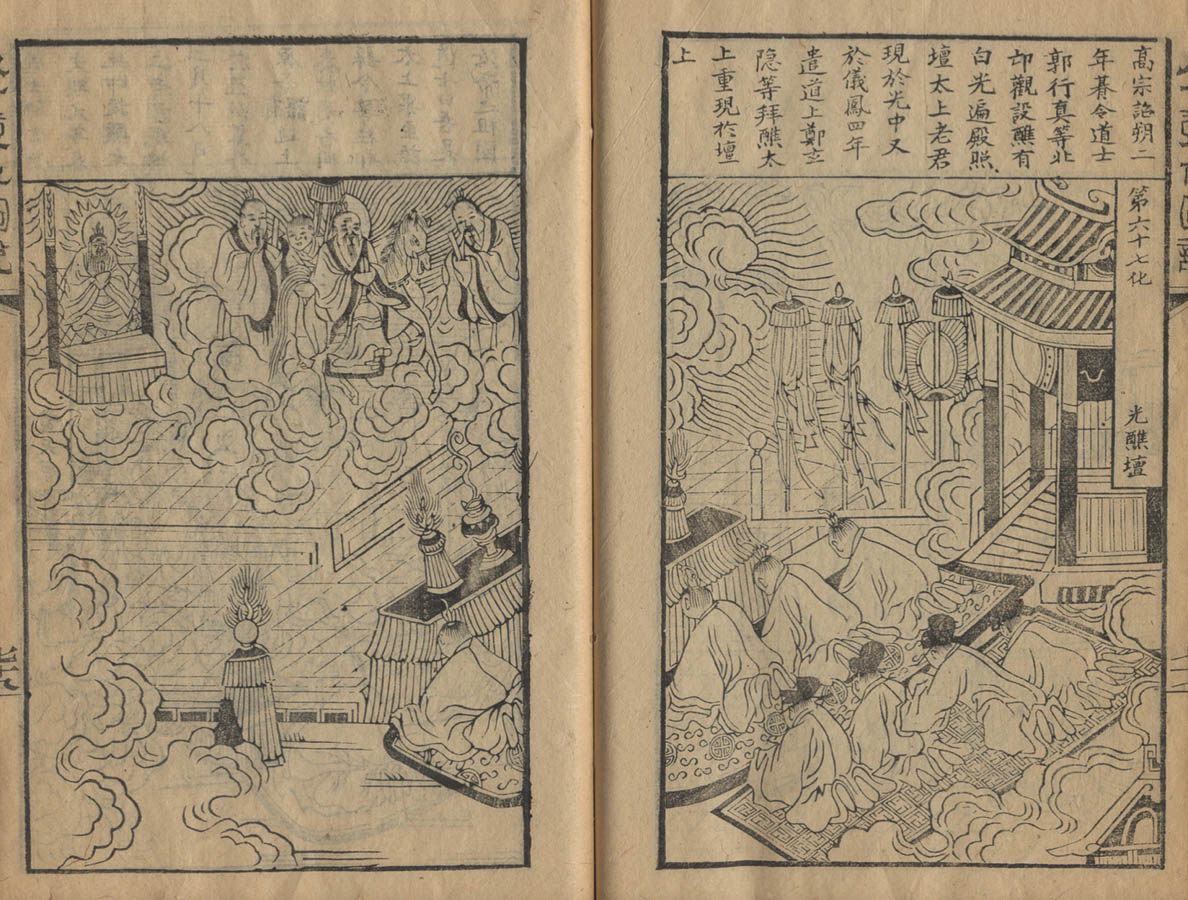 高宗詔朔二
年暮令道士
郭行真等北
邙觀設醮有
白光遍殿照
壇太上老君
現於光中又
於儀鳳四年
遣道上鄭玄
隐等拜醮太
上重現於壇
上
第六十七化
光醮壇